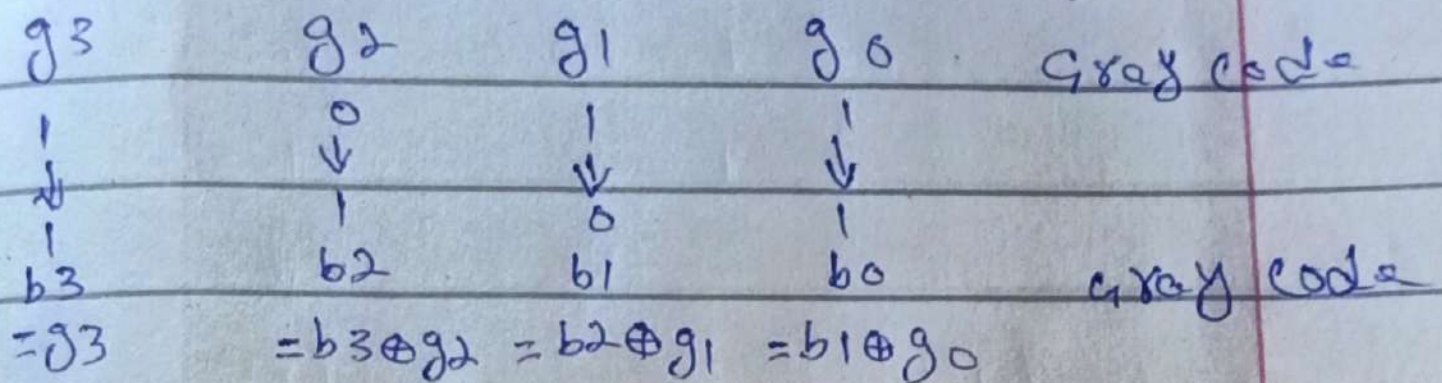 g3 g2 g1 g0 Gray code
1 0 1 1
↓ ↓ ↓ ↓
1 1 0 1
b3 b2 b1 b0 Gray code
=g3 =b3⊕g2 =b2⊕g1 =b1⊕g0